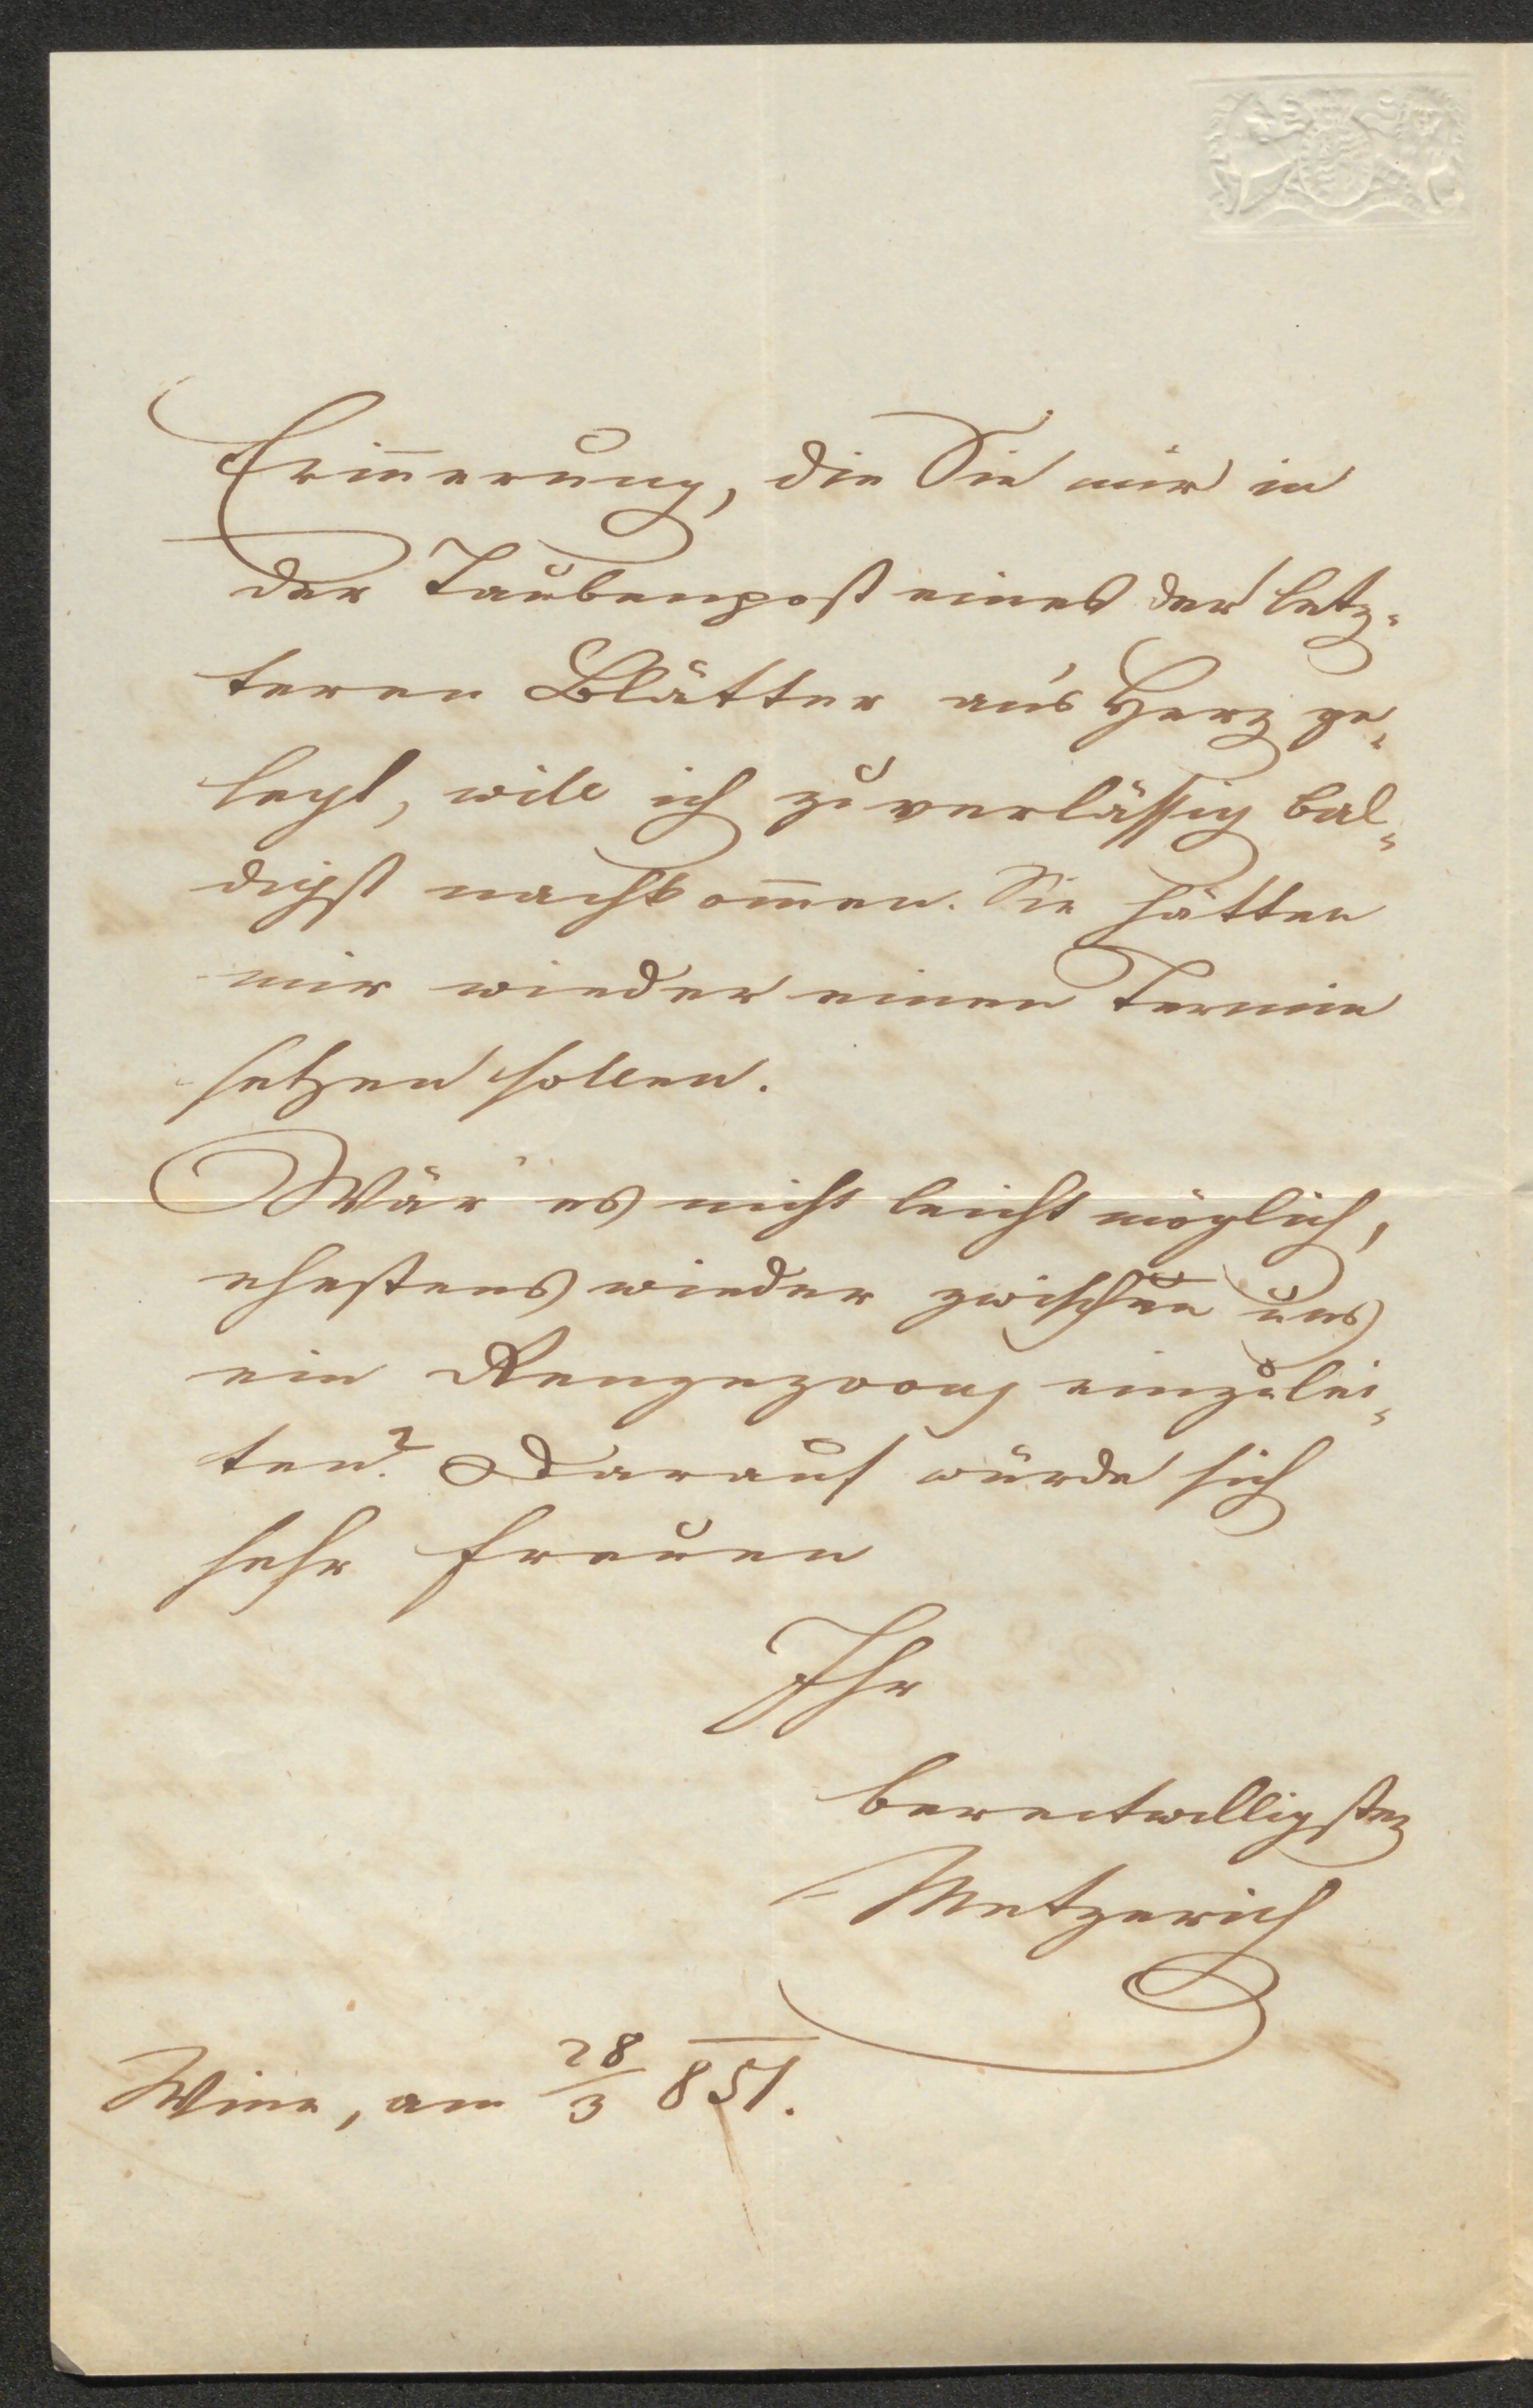 Erin̄erung, die Sie mir in
der Taubenpost eines der letz-
teren Blätter an's Herz ge-
legt, will ich zuverlässig bal-
digst nachkom̄en. Sie hätten
mir wieder einen Termin
setzen sollen.
Wär' es nicht leicht möglich,
ehestens wieder zwischen uns
ein einzulei-
ten? Darauf würde sich
sehr freuen
Ihr
bereitwilligster
Metzerich
Wien, am 28/3 851.